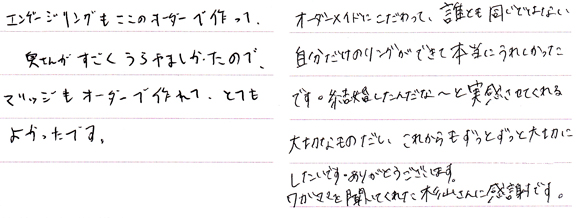 エンゲージリングもここのオーダーで作って、
奥さんがすごくうらやましかったので、
マリッジもオーダーで作れて、とても
よかったです。
オーダーメイドにこだわって、誰とも同じではない
自分だけのリングができて本当にうれしかった
です。結婚したんだな～と実感させてくれる
大切なものだし、これからもずっとずっと大切に
したいです。ありがとうございます。
ワガママを聞いてくれた杉山さんに感謝です。